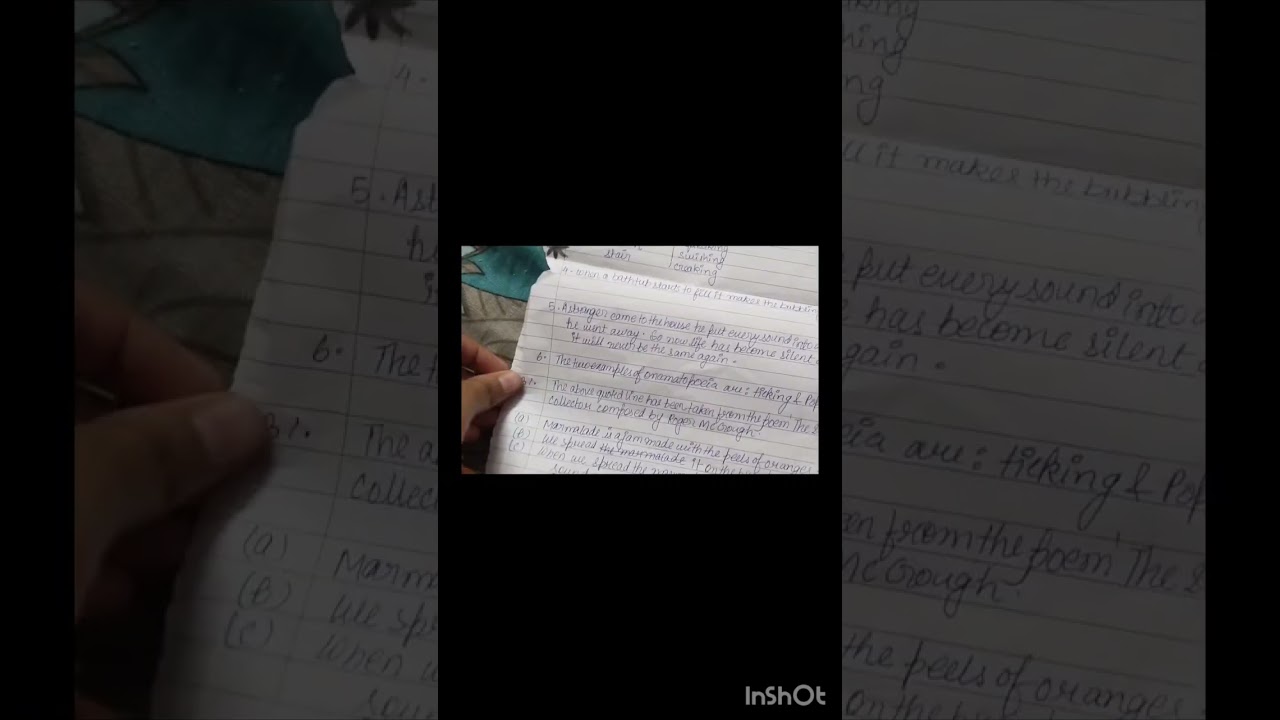 stair
swiming
creaking
4- When a bathtub starts to fill it makes the bubblin
5. A stranger came to the house he put every sound into
he went away. So now life has become silent
it will never be the same again.
6. The two examples of onamatopoeia are: ticking & Pop
B1. The above quoted line has been taken from the poem 'The
collector composed by Roger McGough.
(a) Marmalade is a Jam made with the peels of oranges
(b) We spread the marmalade it on the
(c) When we spread the
soun
InShOt